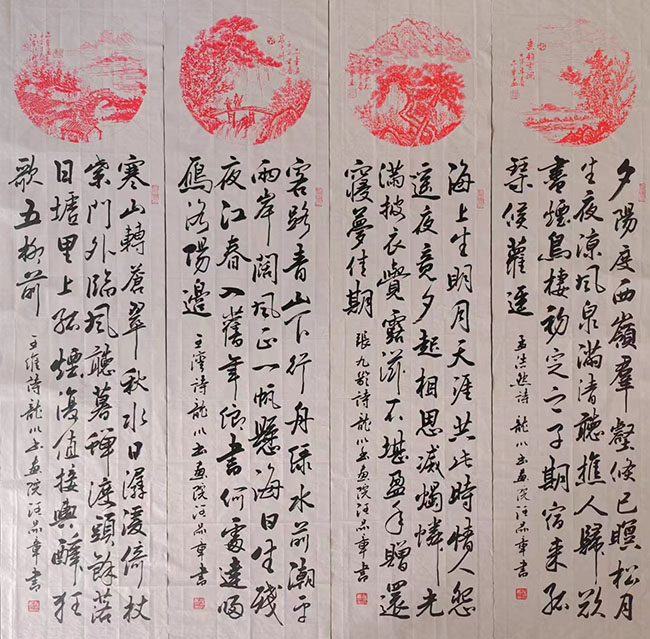 夕陽度西嶺羣壑倏已暝松月
生夜涼風泉滿清聽樵人歸欲
盡煙鳥棲初定之子期宿來孤
琴候蘿逕
孟浩然詩 龍川書畫院汪章書
海上生明月天涯共此時情人怨
遥夜竟夕起相思滅燭憐光
滿披衣覺露滋不堪盈手贈還
寢夢佳期
張九齡詩龍川書畫院汪章書
客路青山下行舟綠水前潮平
兩岸闊風正一帆懸海日生殘
夜江春入舊年鄉書何處達歸
鴈洛陽邊
王灣詩龍川書畫院汪章書
寒山轉蒼翠秋水日潺湲倚杖
柴門外臨風聽暮蟬渡頭餘落
日墟里上孤煙復值接輿醉狂
歌五柳前
王維詩龍川書畫院汪章書